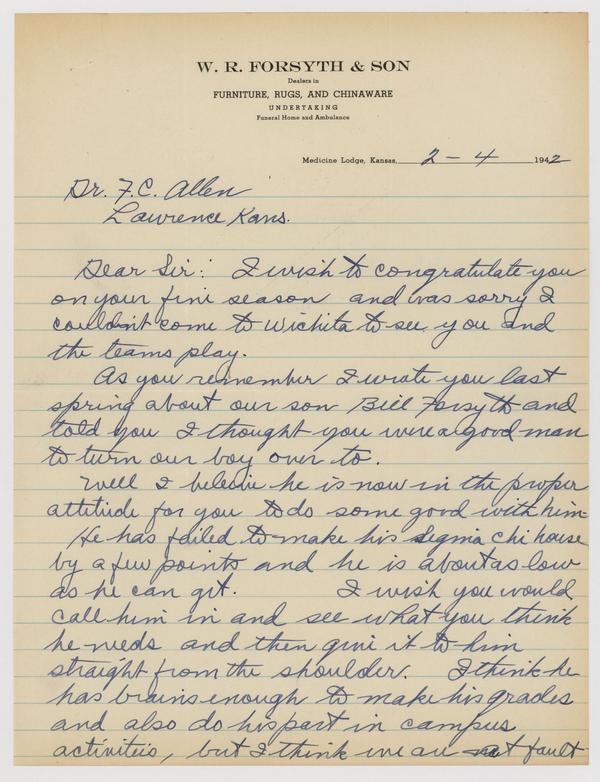 W. R. FORSYTH & SON
Dealers in
FURNITURE, RUGS, AND CHINAWARE
UNDERTAKING
Funeral Home and Ambulance
Medicine Lodge, Kansas, 2 - 4 1942
Dr. F. C. Allen
Lawrence Kans.
Dear Sir: I wish to congratulate you
on your fine season and was sorry I
couldn't come to Wichita to see you and
the teams play.
As you remember I wrote you last
spring about our son Bill Forsyth and
told you I thought you were a good man
to turn our boy over to.
Well I beleive he is now in the proper
attitude for you to do some good with him-
He has failed to make his Segma Chi house
by a few points and he is about as low
as he can get. I wish you would
call him in and see what you think
he needs and then give it to him
straight from the shoulder. I think he
has brains enough to make his grades
and also do his part in campus
activities, but I think we are at fault